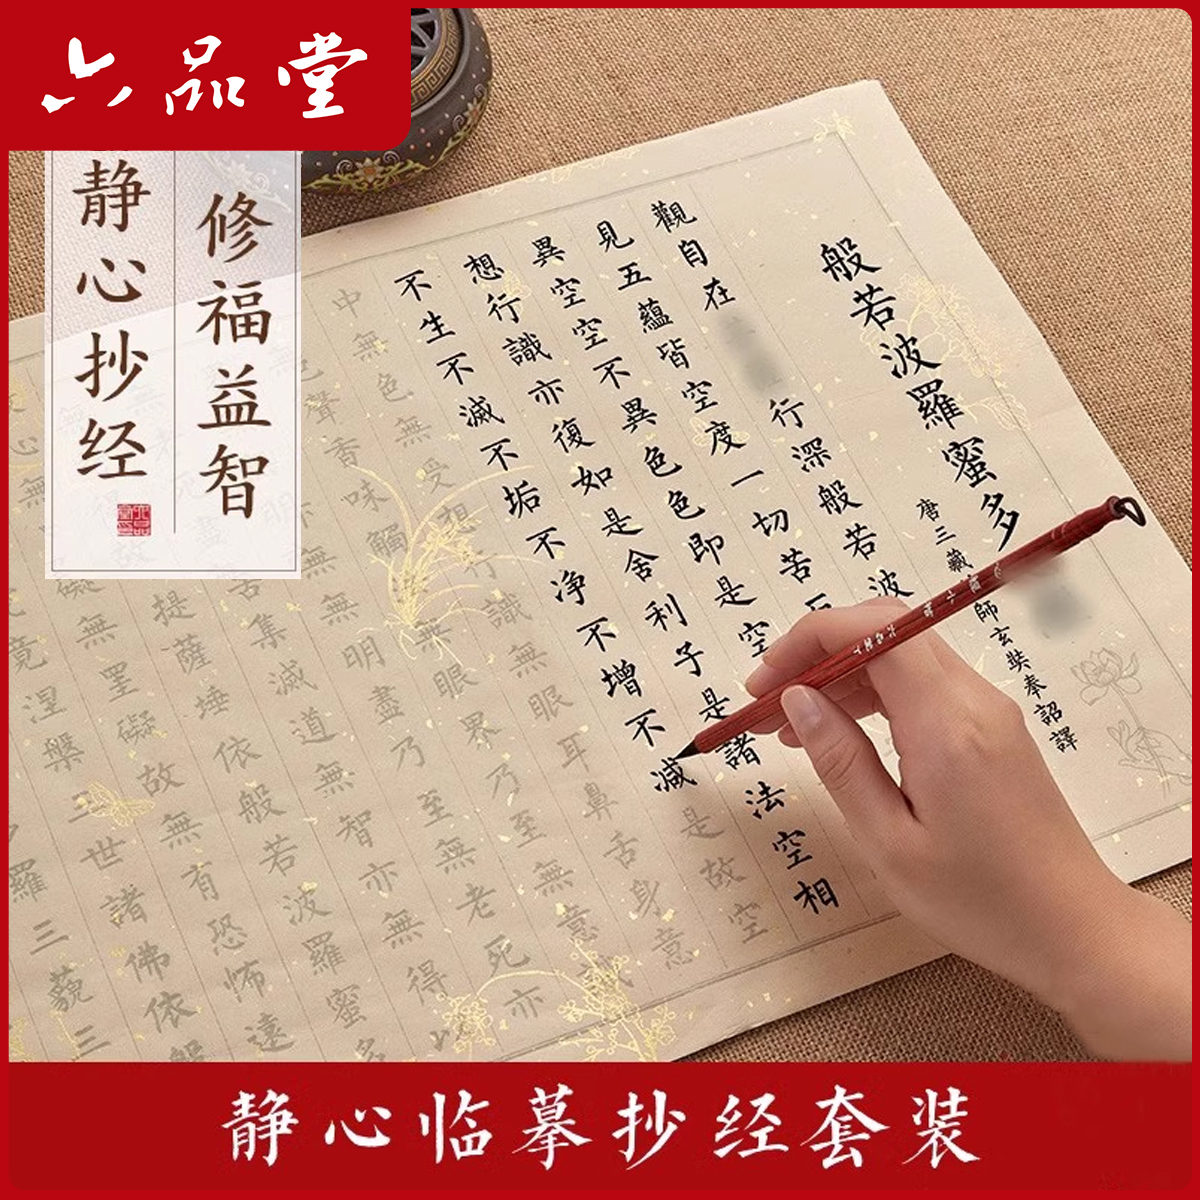 六品堂
修福益智
静心抄经
般若波羅蜜多
唐三藏
師玄奘奉詔譯
觀自在
行深般若波
見五蘊皆空度一切苦
異空空不異色色即是空
想行識亦復如是舍利子是諸法空相
不生不滅不垢不净不增不减是故空
中無色無受想行識無眼耳鼻舌身意
色聲香味觸
無眼界乃至無意識
無無明盡乃至無老死亦
盡
苦集滅道無智亦無得以
提薩埵依般若波羅蜜多
礙無罣礙故無有恐怖遠
竟涅槃三世諸佛依般
羅三藐三
静心临摹抄经套装